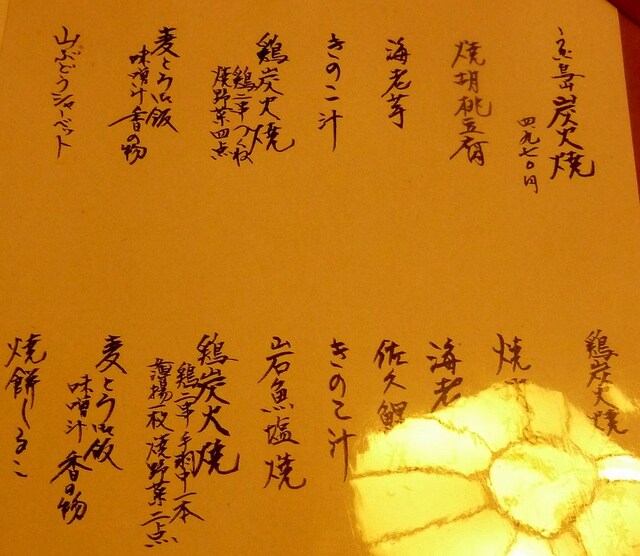 炭火焼
四九七〇円
焼胡桃豆腐
海老芋
きのこ汁
鶏炭火焼
鶏二串つくね
焼野菜四点
麦とろ飯
味噌汁 香の物
山ぶどうシャーベット
鶏炭火焼
焼
海老
佐久鯉
きのこ汁
岩魚塩焼
鶏炭火焼
鶏二串 手羽中一本
一枚 焼野菜二点
麦とろ飯
味噌汁 香の物
焼餅しるこ